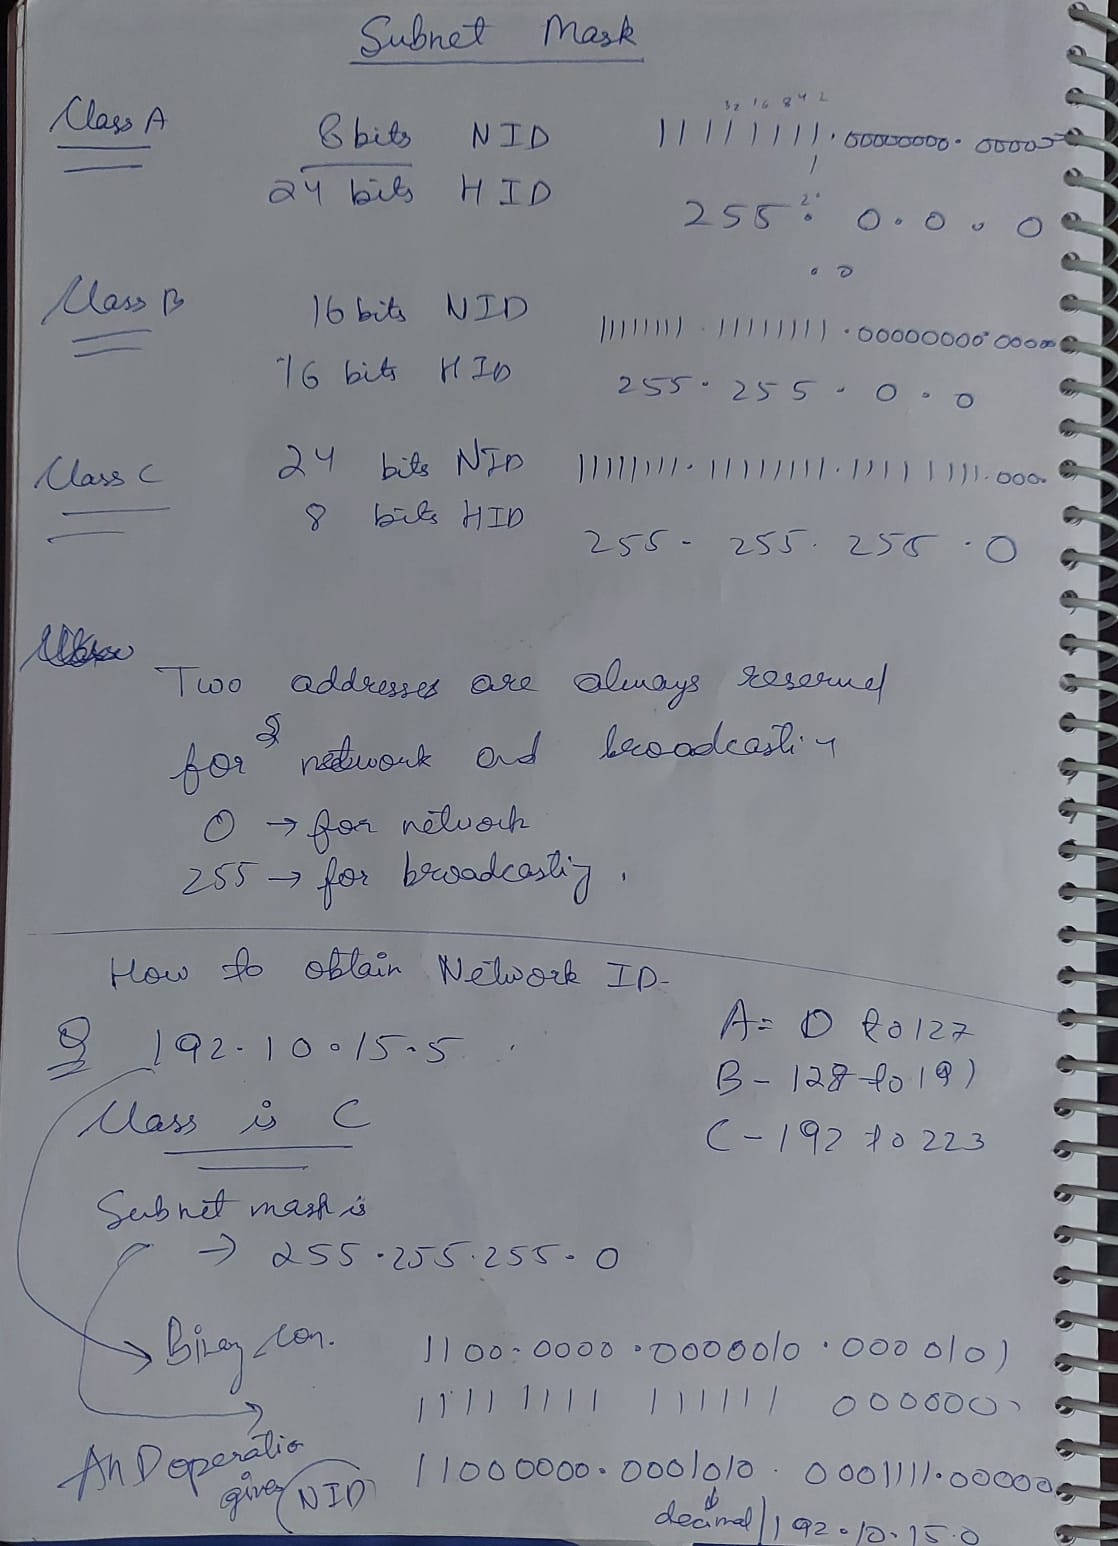 Subnet Mask
Class A
8 bits NID
32 16 8 4 2
11111111.00000000.00000
24 bits HID
255.0.0.0
Class B
16 bits NID
11111111.11111111.00000000.00000
16 bits HID
255.255.0.0
Class C
24 bits NID
11111111.11111111.11111111.000
8 bits HID
255.255.255.0
Two addresses are always reserved
for network and broadcasting
0 → for network
255 → for broadcasting.
How to obtain Network ID-
Q 192.10.15.5
A = 0 to 127
B - 128 to 191
C - 192 to 223
Class is C
Subnet mask is
→ 255.255.255.0
Binary con. 1100.0000.0000010.0000101
11111111 111111 000000
AND operatio
gives NID
11000000.0001010.0001111.00000
decimal 192.10.15.0